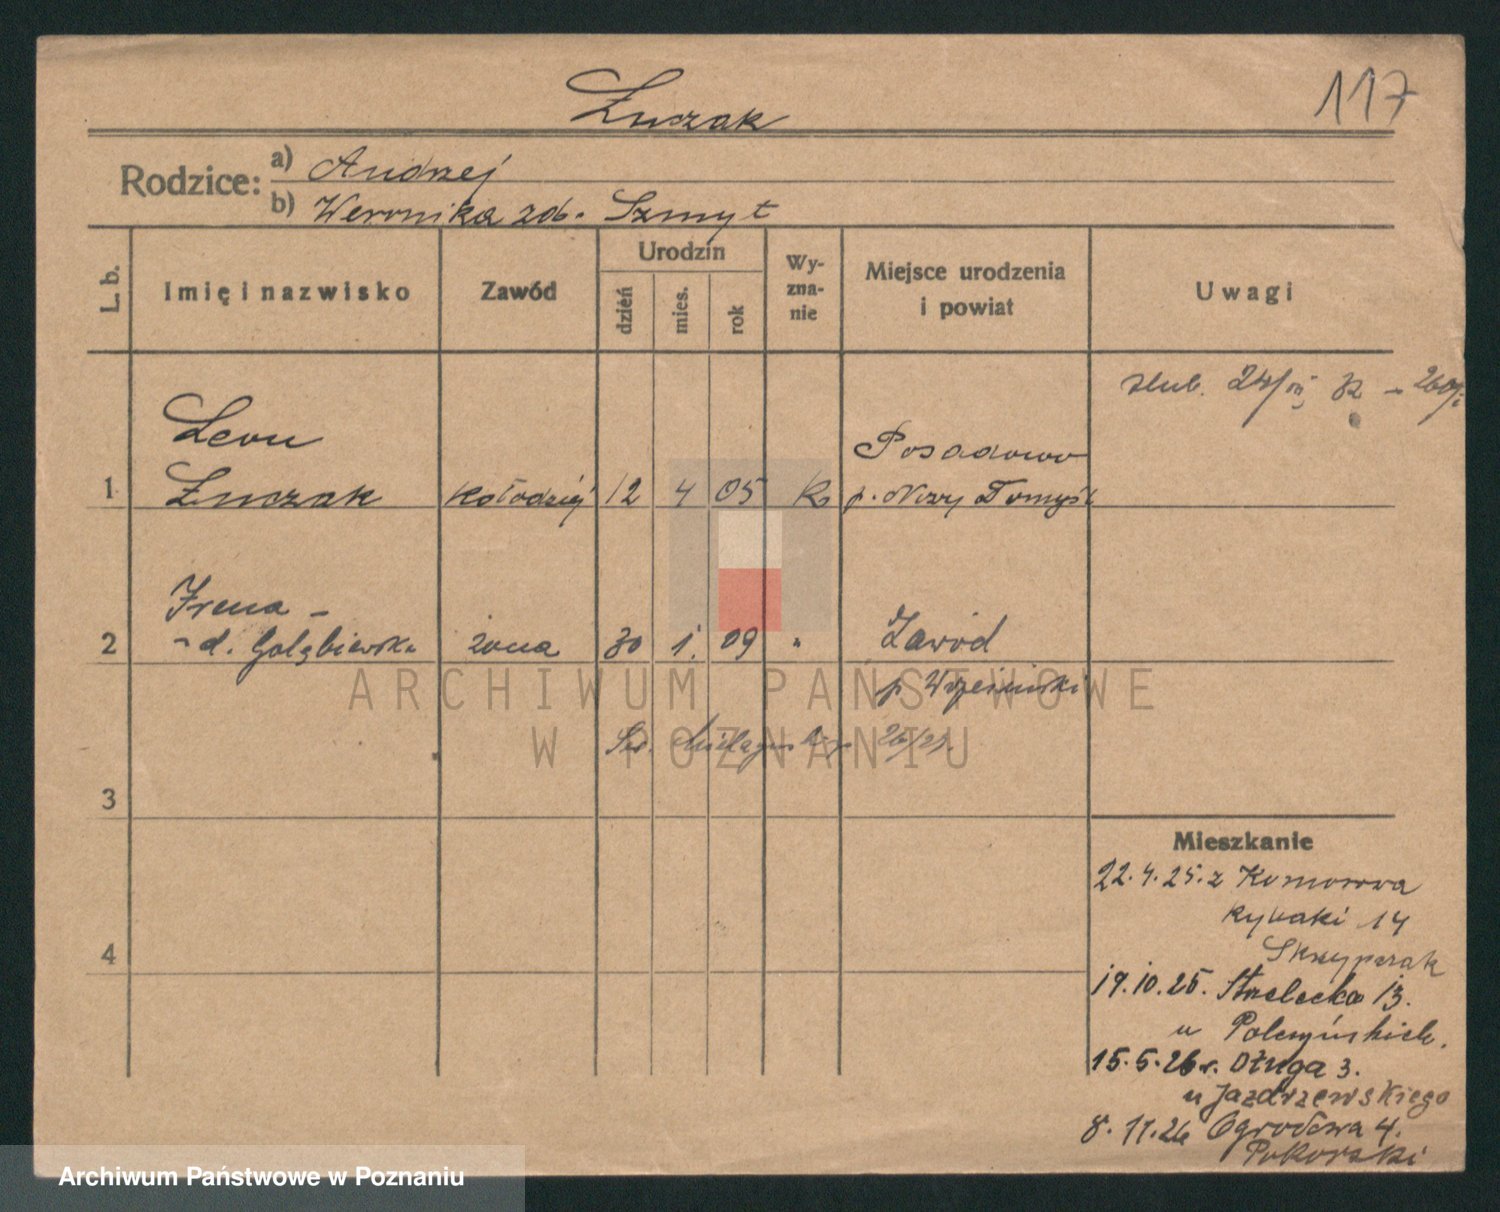 Łuczak
117
Rodzice:
a) Andrzej
b) Weronika zd. Szmyt
L. b.
Imię i nazwisko
Zawód
Urodzin
dzień
mies.
rok
Wy-
zna-
nie
Miejsce urodzenia
i powiat
Uwagi
ślub. 24/
Leon
Posadowo
1 Łuczak kołodziej 12 4 05 K p. Nowy Tomyśl
Irena -
2 d. Gołębiewska żona 30 1. 09 " Zawód
p. Wrzesiński
ARCHIWUM PAŃSTWOWE
W POZNANIU
3
Mieszkanie
22.4.25. z Komorowa
Rybaki 14
Skrzypczak
4
19.10.25. Strzelecka 13.
u Polczyńskich.
15.5.26 r. Długa 3.
u Jazdrzewskiego
8.11.26 Ogrodowa 4.
Pokorski
Archiwum Państwowe w Poznaniu